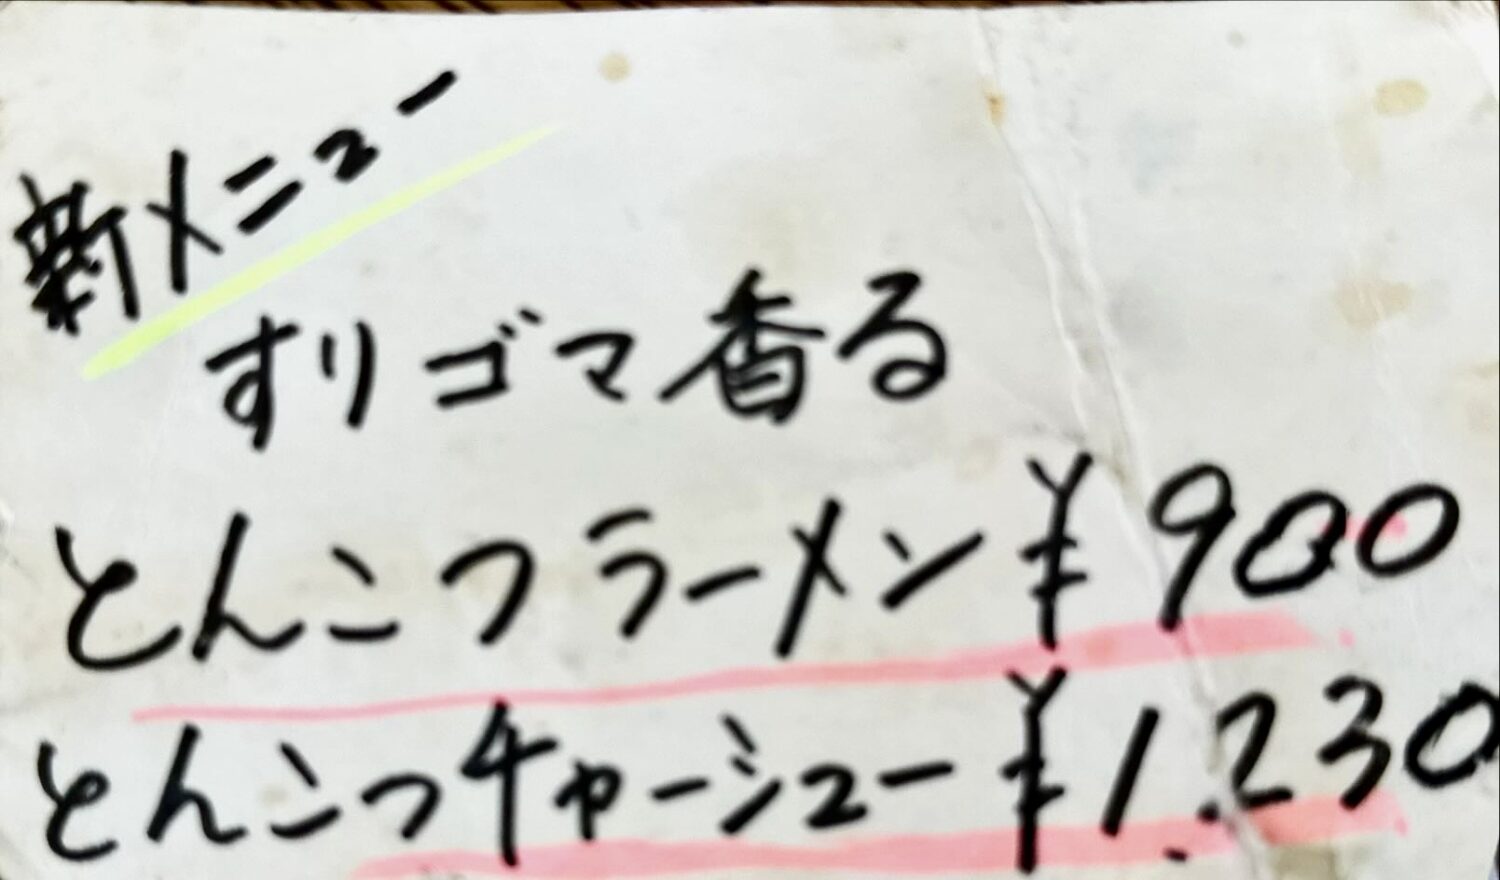 新メニュー
すりゴマ香る
とんこつラーメン ¥900
とんこつチャーシュー ¥1,230